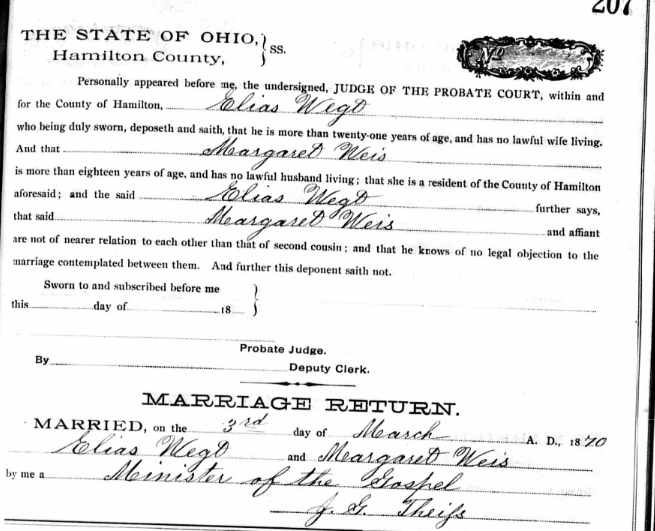 207
THE STATE OF OHIO, } ss.
Hamilton County,
No
Personally appeared before me, the undersigned, JUDGE OF THE PROBATE COURT, within and
for the County of Hamilton, Elias Wegt
who being duly sworn, deposeth and saith, that he is more than twenty-one years of age, and has no lawful wife living.
And that Margaret Weis
is more than eighteen years of age, and has no lawful husband living; that she is a resident of the County of Hamilton
aforesaid; and the said Elias Wegt further says,
that said Margaret Weis and affiant
are not of nearer relation to each other than that of second cousin; and that he knows of no legal objection to the
marriage contemplated between them. And further this deponent saith not.
Sworn to and subscribed before me
this day of 18 }
Probate Judge.
By Deputy Clerk.
MARRIAGE RETURN.
MARRIED, on the 3rd day of March A. D., 1870
Elias Wegt and Margaret Weis
by me a Minister of the Gospel
J. G. Theiss